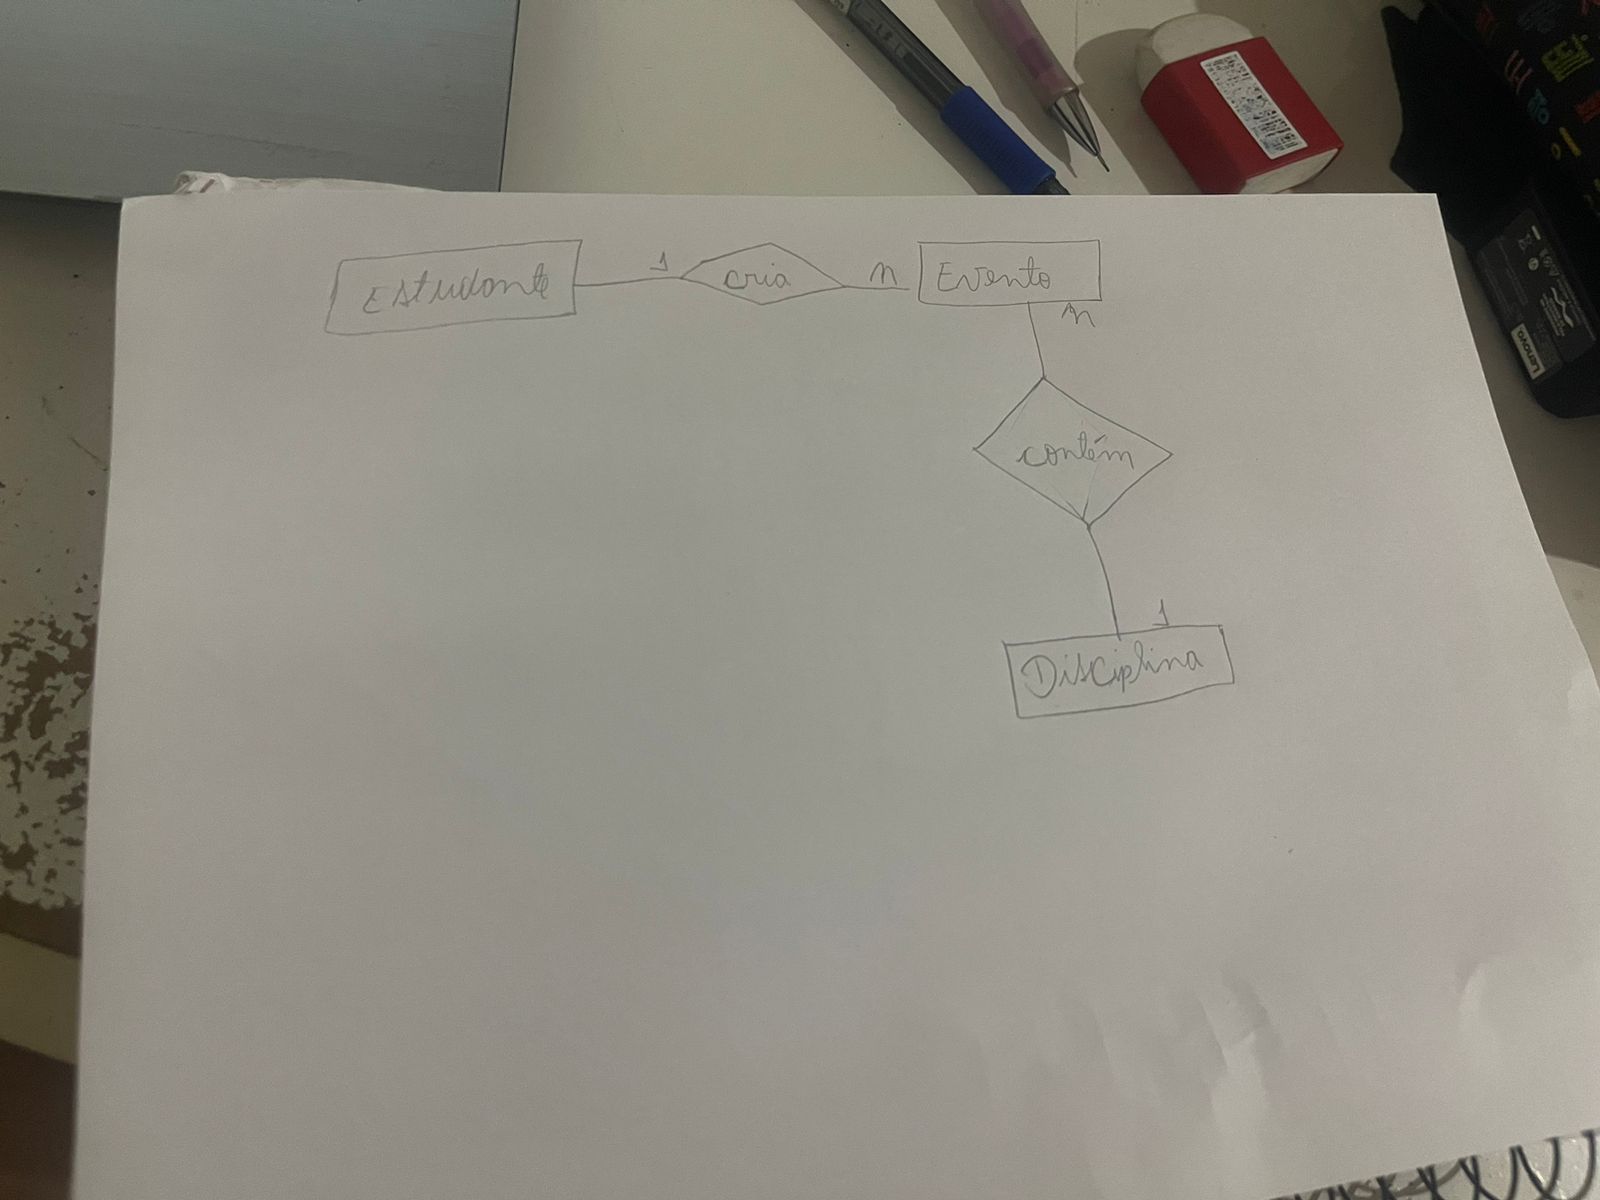 Estudante 1 cria n Evento
n
contém
1
Disciplina
Lenovo